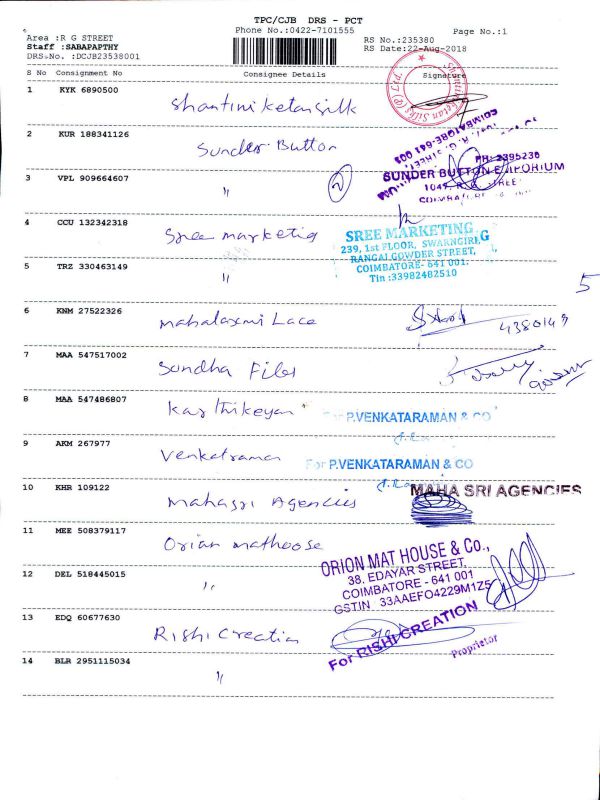 TPC/CJB DRS - PCT
Area :R G STREET
Phone No.:0422-7101555
Page No.:1
Staff :SABAPAPTHY
RS No.:235380
DRS No. :DCJB23538001
RS Date:22-Aug-2018
S No Consignment No Consignee Details Signature
1 KYK 6890500 Shantini ketan silk
2 KUR 188341126 Sunder Button
PH: 2395230
SUNDER BUTTON EMPORIUM
3 VPL 909664607 "
2
4 CCU 132342318 Sree marketig
SREE MARKETING
239, 1st FLOOR, SWARNGIRI,
RANGAI GOWDER STREET,
COIMBATORE- 641 001.
Tin :33982482510
5 TRZ 330463149 "
5
6 KNM 27522326 mahalaxmi Lace
7 MAA 547517002 Sondha Files
8 MAA 547486807 Karthikeyan
For P.VENKATARAMAN & CO
9 AKM 267977 Venkatraman
For P.VENKATARAMAN & CO
10 KHR 109122 mahasri Agencies
MAHA SRI AGENCIES
11 MEE 508379117 Orian mathoose
ORION MAT HOUSE & Co.,
38, EDAYAR STREET,
COIMBATORE - 641 001
GSTIN 33AAEFO4229M1Z5
12 DEL 518445015 "
13 EDQ 60677630 Rishi Creation
For RISHI CREATION
Proprietor
14 BLR 2951115034 "